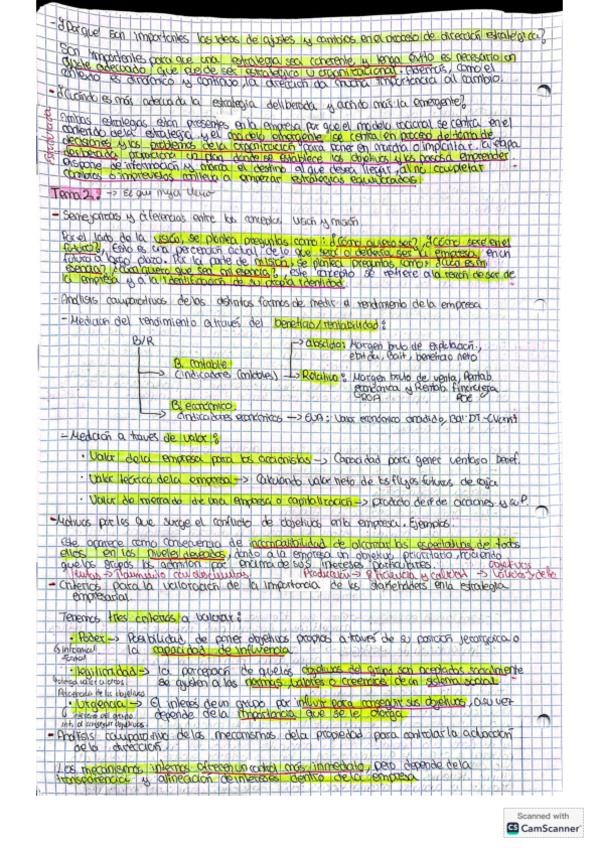 - ¿Porqué son importantes las ideas de ajustes y cambios en el proceso de dirección estratégica?
Son importantes para que una estrategia sea coherente, y tenga éxito es necesario un
ajuste adecuado, que puede ser estratégico u organizacional. Además, como el
es dinámico y continuo, la dirección da mucha importancia al cambio.
- ¿Cuándo es más adecuada la estrategia deliberada y cuándo más la emergente?
Ambas estrategias están presentes en la empresa por que el modelo racional se centra en el
contenido de la estrategia y el modelo emergente se centra en proceso de toma de
decisiones y los problemas de la organización para poner en marcha o implantar. La etapa
deliberada proporciona un plan donde se establece los objetivos y los pasos a emprender.
Dispone de información y orienta el destino al que desea llegar, al no completar
cambios o imprevistos conlleva a empezar estrategias equivocadas.
Tema 2:
- Semejanzas y diferencias entre los conceptos visión y misión.
Por el lado de la visión, se plantea preguntas como: ¿Cómo quiero ser?, ¿Cómo seré en el
futuro?, Esta es una percepción actual de lo que será o debería ser la empresa en un
futuro a largo plazo. Por la parte de misión, se plantea preguntas como: ¿Cuál es mi
esencia? ¿Cuál quiero que sea mi esencia?, este concepto se refiere a la razón de ser de
la empresa y a la identificación de su propia identidad.
- Análisis comparativos de las distintas formas de medir el rendimiento de la empresa
- Medición del rendimiento a través del beneficio/rentabilidad:
B/R
Absoluto: Margen bruto de explotación,
ebitda, bait, beneficio neto
B. contable
(indicadores contables)
Relativo: Margen bruto de venta, Rentab.
económica y Rentab. financiera
ROA ROE
B. económico
(indicadores económicos) → EVA: Valor económico añadido,
- Medición a través de valor:
• Valor de la empresa para los accionistas → Capacidad para generar
• Valor teórico de la empresa → Calculando valor neto de los flujos futuros de caja
• Valor de mercado de una empresa o capitalización → producto de nº de acciones y su P.
- Motivos por los que surge el conflicto de objetivos en la empresa. Ejemplos.
Este aparece como consecuencia de incompatibilidad de alcanzar las expectativas de todos
ellos en los niveles deseados, dando a la empresa un objetivo prioritario, haciendo
que los grupos los admitan por encima de sus intereses particulares.
- Criterios para la valoración de la importancia de los stakeholders en la estrategia
empresarial
Tenemos tres criterios a valorar:
• Poder → Posibilidad de poner objetivos propios a través de su posición jerárquica o
la capacidad de influencia.
• Legitimidad → la percepción de aquellos objetivos del grupo son aceptados socialmente
se ayuden a las normas, valores o creencias de un sistema social.
• Urgencia → El interés de un grupo por influir para conseguir sus objetivos, a su vez
depende de la importancia que se le otorga.
- Análisis comparativo de los mecanismos de la propiedad para controlar la actuación
de la dirección.
Los mecanismos internos ofrecen un control más inmediato, pero depende de la
transparencia y alineación de intereses dentro de la empresa
Scanned with
CS CamScanner